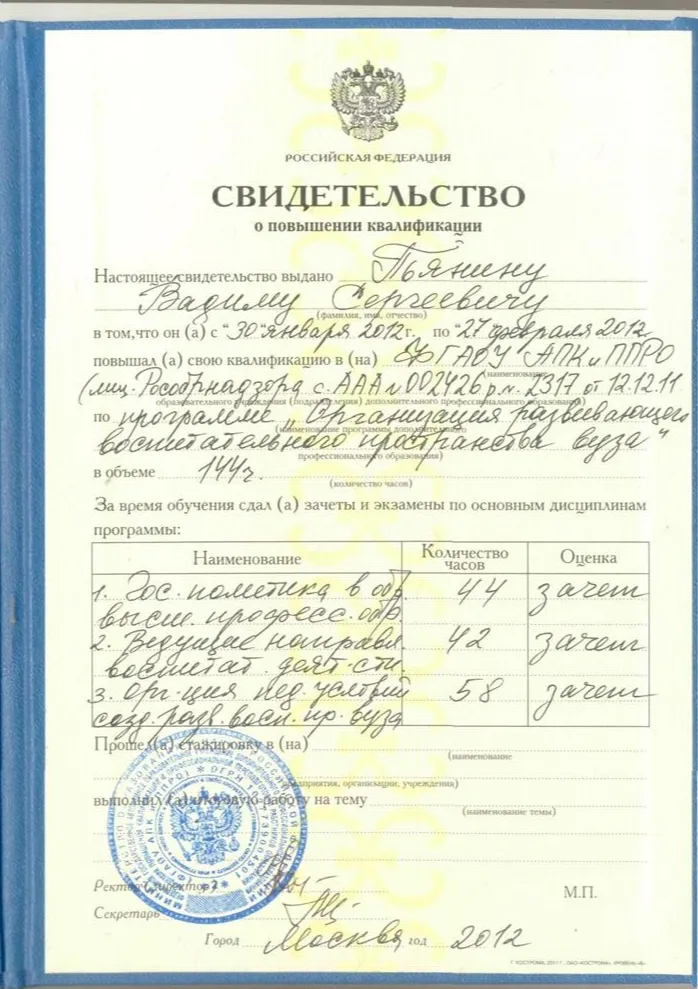 РОССИЙСКАЯ ФЕДЕРАЦИЯ
СВИДЕТЕЛЬСТВО
о повышении квалификации
Настоящее свидетельство выдано Пьянину
Вадиму Сергеевичу
(фамилия, имя, отчество)
в том, что он (а) с "30" января 2012 г. по "27" февраля 2012
повышал (а) свою квалификацию в (на) ФГАОУ АПК и ППРО
(наименование
(лиц. Рособрнадзора с. ААА № 002426 р.н. 2317 от 12.12.11
образовательного учреждения (подразделения) дополнительного профессионального образования)
по программе „Организация развивающего
(наименование программы дополнительного
воспитательного пространства вуза"
профессионального образования)
в объеме 144 ч.
(количество часов)
За время обучения сдал (а) зачеты и экзамены по основным дисциплинам
программы:
Наименование Количество часов Оценка
1. Гос. политика в обл. 44 зачет
высш. професс. обр.
2. Ведущие направл. 42 зачет
воспитат. деят-сти.
3. Орг-ция пед. условий 58 зачет
созд. разв. восп. пр. вуза
Прошел (а) стажировку в (на)
(наименование
предприятия, организации, учреждения)
выполнил (а) итоговую работу на тему
(наименование темы)
Ректор (директор)
М.П.
Секретарь
Город Москва год 2012